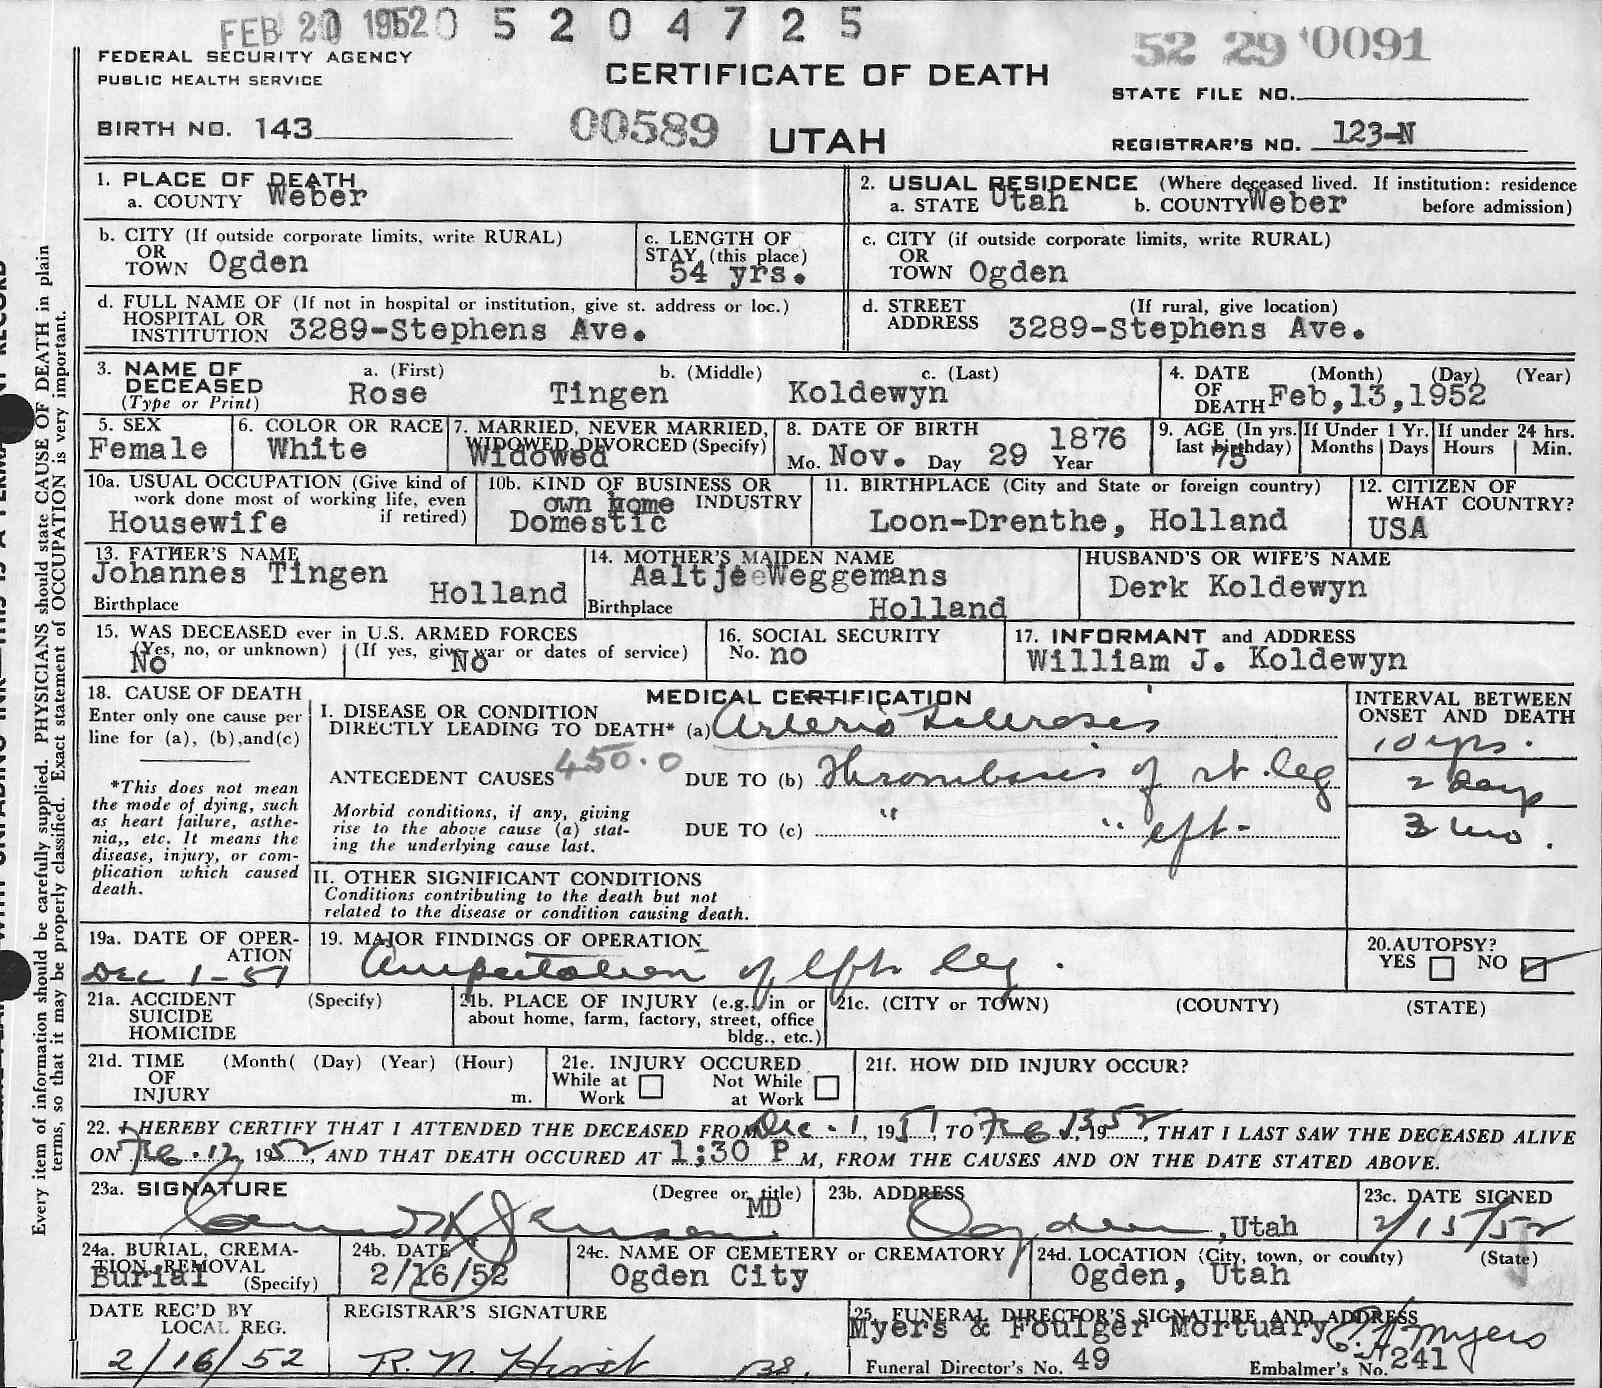 FEB 20 1952 0 5 2 0 4 7 2 5
52 29 0091
FEDERAL SECURITY AGENCY
PUBLIC HEALTH SERVICE
CERTIFICATE OF DEATH
STATE FILE NO.
BIRTH NO. 143
00589
UTAH
REGISTRAR'S NO. 123-N
1. PLACE OF DEATH
a. COUNTY Weber
2. USUAL RESIDENCE (Where deceased lived. If institution: residence before admission)
a. STATE Utah b. COUNTY Weber
b. CITY (If outside corporate limits, write RURAL)
OR
TOWN Ogden
c. LENGTH OF
STAY (this place)
54 yrs.
c. CITY (if outside corporate limits, write RURAL)
OR
TOWN Ogden
d. FULL NAME OF (If not in hospital or institution, give st. address or loc.)
HOSPITAL OR
INSTITUTION 3289-Stephens Ave.
d. STREET (If rural, give location)
ADDRESS 3289-Stephens Ave.
3. NAME OF
DECEASED
(Type or Print)
a. (First) b. (Middle) c. (Last)
Rose Tingen Koldewyn
4. DATE (Month) (Day) (Year)
OF
DEATH Feb,13,1952
5. SEX
Female
6. COLOR OR RACE
White
7. MARRIED, NEVER MARRIED,
WIDOWED, DIVORCED (Specify)
Widowed
8. DATE OF BIRTH 1876
Mo. Nov. Day 29 Year
9. AGE (In yrs. last birthday)
75
If Under 1 Yr.
Months Days
If under 24 hrs.
Hours Min.
10a. USUAL OCCUPATION (Give kind of
work done most of working life, even
if retired)
Housewife
10b. KIND OF BUSINESS OR
INDUSTRY
own home
Domestic
11. BIRTHPLACE (City and State or foreign country)
Loon-Drenthe, Holland
12. CITIZEN OF
WHAT COUNTRY?
USA
13. FATHER'S NAME
Johannes Tingen
Birthplace Holland
14. MOTHER'S MAIDEN NAME
Aaltje Weggemans
Birthplace Holland
HUSBAND'S OR WIFE'S NAME
Derk Koldewyn
15. WAS DECEASED ever in U.S. ARMED FORCES
(Yes, no, or unknown) (If yes, give war or dates of service)
No No
16. SOCIAL SECURITY
No. no
17. INFORMANT and ADDRESS
William J. Koldewyn
18. CAUSE OF DEATH
Enter only one cause per
line for (a), (b),and(c)
*This does not mean
the mode of dying, such
as heart failure, asthe-
nia,, etc. It means the
disease, injury, or com-
plication which caused
death.
MEDICAL CERTIFICATION
I. DISEASE OR CONDITION
DIRECTLY LEADING TO DEATH* (a) Arterio Sclerosis
ANTECEDENT CAUSES 450.0 DUE TO (b) Thrombosis of rt. leg
Morbid conditions, if any, giving
rise to the above cause (a) stat-
ing the underlying cause last.
DUE TO (c) " " left-
INTERVAL BETWEEN
ONSET AND DEATH
10 yrs.
2 days
3 mo.
II. OTHER SIGNIFICANT CONDITIONS
Conditions contributing to the death but not
related to the disease or condition causing death.
19a. DATE OF OPER-
ATION
Dec 1-51
19. MAJOR FINDINGS OF OPERATION
Amputation of left leg.
20. AUTOPSY?
YES NO
21a. ACCIDENT (Specify)
SUICIDE
HOMICIDE
21b. PLACE OF INJURY (e.g., in or
about home, farm, factory, street, office
bldg., etc.)
21c. (CITY or TOWN) (COUNTY) (STATE)
21d. TIME (Month( (Day) (Year) (Hour)
OF
INJURY m.
21e. INJURY OCCURED
While at Work Not While at Work
21f. HOW DID INJURY OCCUR?
22. I HEREBY CERTIFY THAT I ATTENDED THE DECEASED FROM Dec. 1, 1951, TO Feb 13, 1952, THAT I LAST SAW THE DECEASED ALIVE
ON Feb. 12, 1952, AND THAT DEATH OCCURED AT 1:30 P M, FROM THE CAUSES AND ON THE DATE STATED ABOVE.
23a. SIGNATURE (Degree or title)
MD
23b. ADDRESS
Ogden, Utah
23c. DATE SIGNED
2/15/52
24a. BURIAL, CREMA-
TION, REMOVAL
(Specify)
Burial
24b. DATE
2/16/52
24c. NAME OF CEMETERY OR CREMATORY
Ogden City
24d. LOCATION (City, town, or county) (State)
Ogden, Utah
DATE REC'D BY
LOCAL REG.
2/16/52
REGISTRAR'S SIGNATURE
R. N. Hirst
25. FUNERAL DIRECTOR'S SIGNATURE AND ADDRESS
Myers & Foulger Mortuary Myers
Funeral Director's No. 49 Embalmer's No. 241
Every item of information should be carefully supplied. PHYSICIANS should state CAUSE OF DEATH in plain
terms, so that it may be properly classified. Exact statement of OCCUPATION is very important.